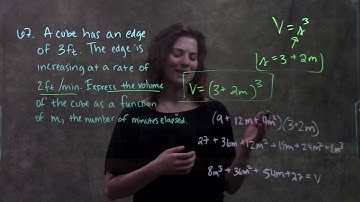 67. A cube has an edge
of 3ft. The edge is
increasing at a rate of
2ft/min. Express the volume
of the cube as a function
of m, the number of minutes elapsed.
V = s³
s = 3 + 2m
V = (3 + 2m)³
(9 + 12m + 4m²)(3+2m)
27 + 36m + 12m² + 18m + 24m² + 8m³
8m³ + 36m² + 54m + 27 = V